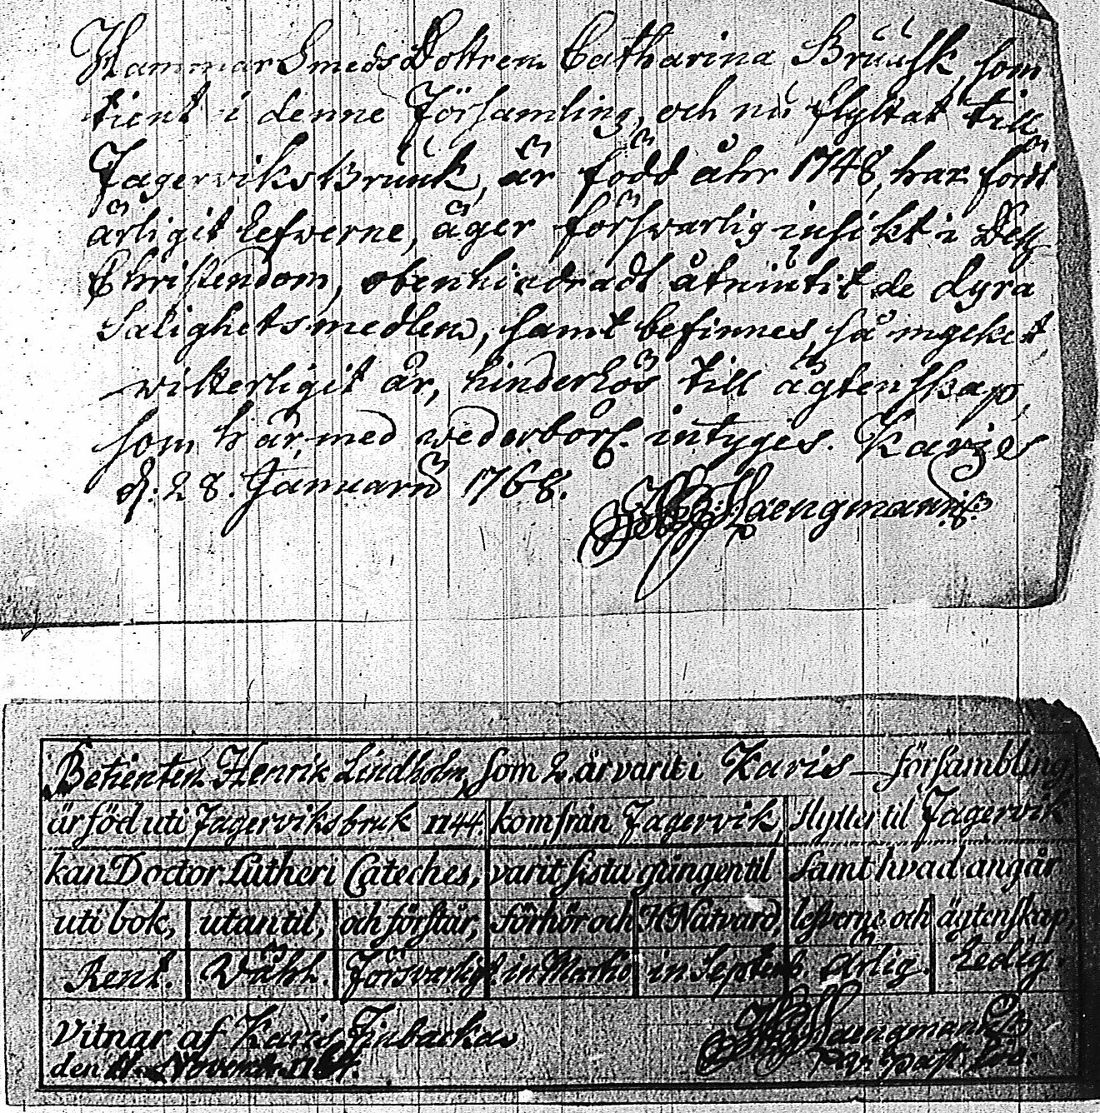 Hammar Smeds Dottren Catharina Bruusk, som
tient i denne Församling, och nu flyttat till
Fagerviks Bruuk, är född åhr 1748, har fördt
ärligit Lefverne, äger försvarlig insikt i Dess
Christendom, obenhindradt åtniutit de dyra
Salighetsmedlen, samt befinnes, så myckt
witterligit är, hinderlös till ägtenskap,
som här med wederbörl. intyges. Karis
d. 28. Januarii 1768.
Haengman
Betienten Henrik Lindholm, som 2 år varit i Karis försambling
är föd uti Fagerviks bruk 1744 kom från Fagervik, flytter til Fagervik
kan Doctor Lutheri Cateches, varit sista gången til samt hvad angår
uti bok, utantil, och förstår, förhör och H. Natvard, lefverne och ägtenskap,
Rent. Wähl. Försvarligt. in Martio in Septemb. Ärlig. Ledig.
Vitnar af Karis Finbacka
den 11. Novemb. Haengman